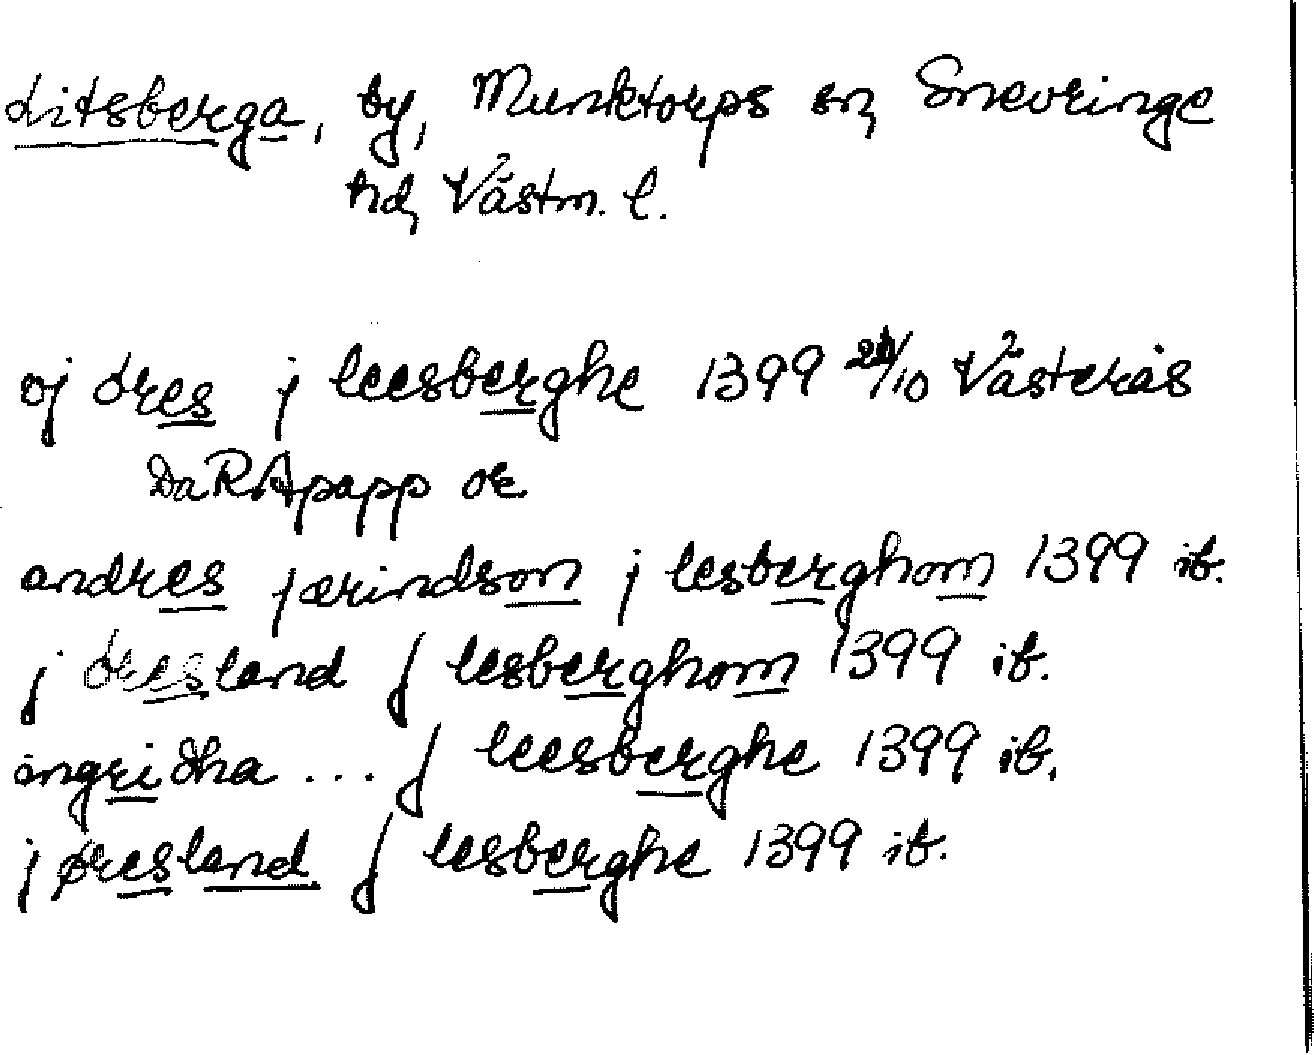 Litsberga, by, Munktorps sn, Snevringe
hd, Västm. l.
oj øres j leesberghe 1399 /10 Västerås
DaRApapp or
andres jærindson j lesberghom 1399 ib.
j øresland j lesberghom 1399 ib.
ingridha ... j leesberghe 1399 ib.
j øresland j lesberghe 1399 ib.